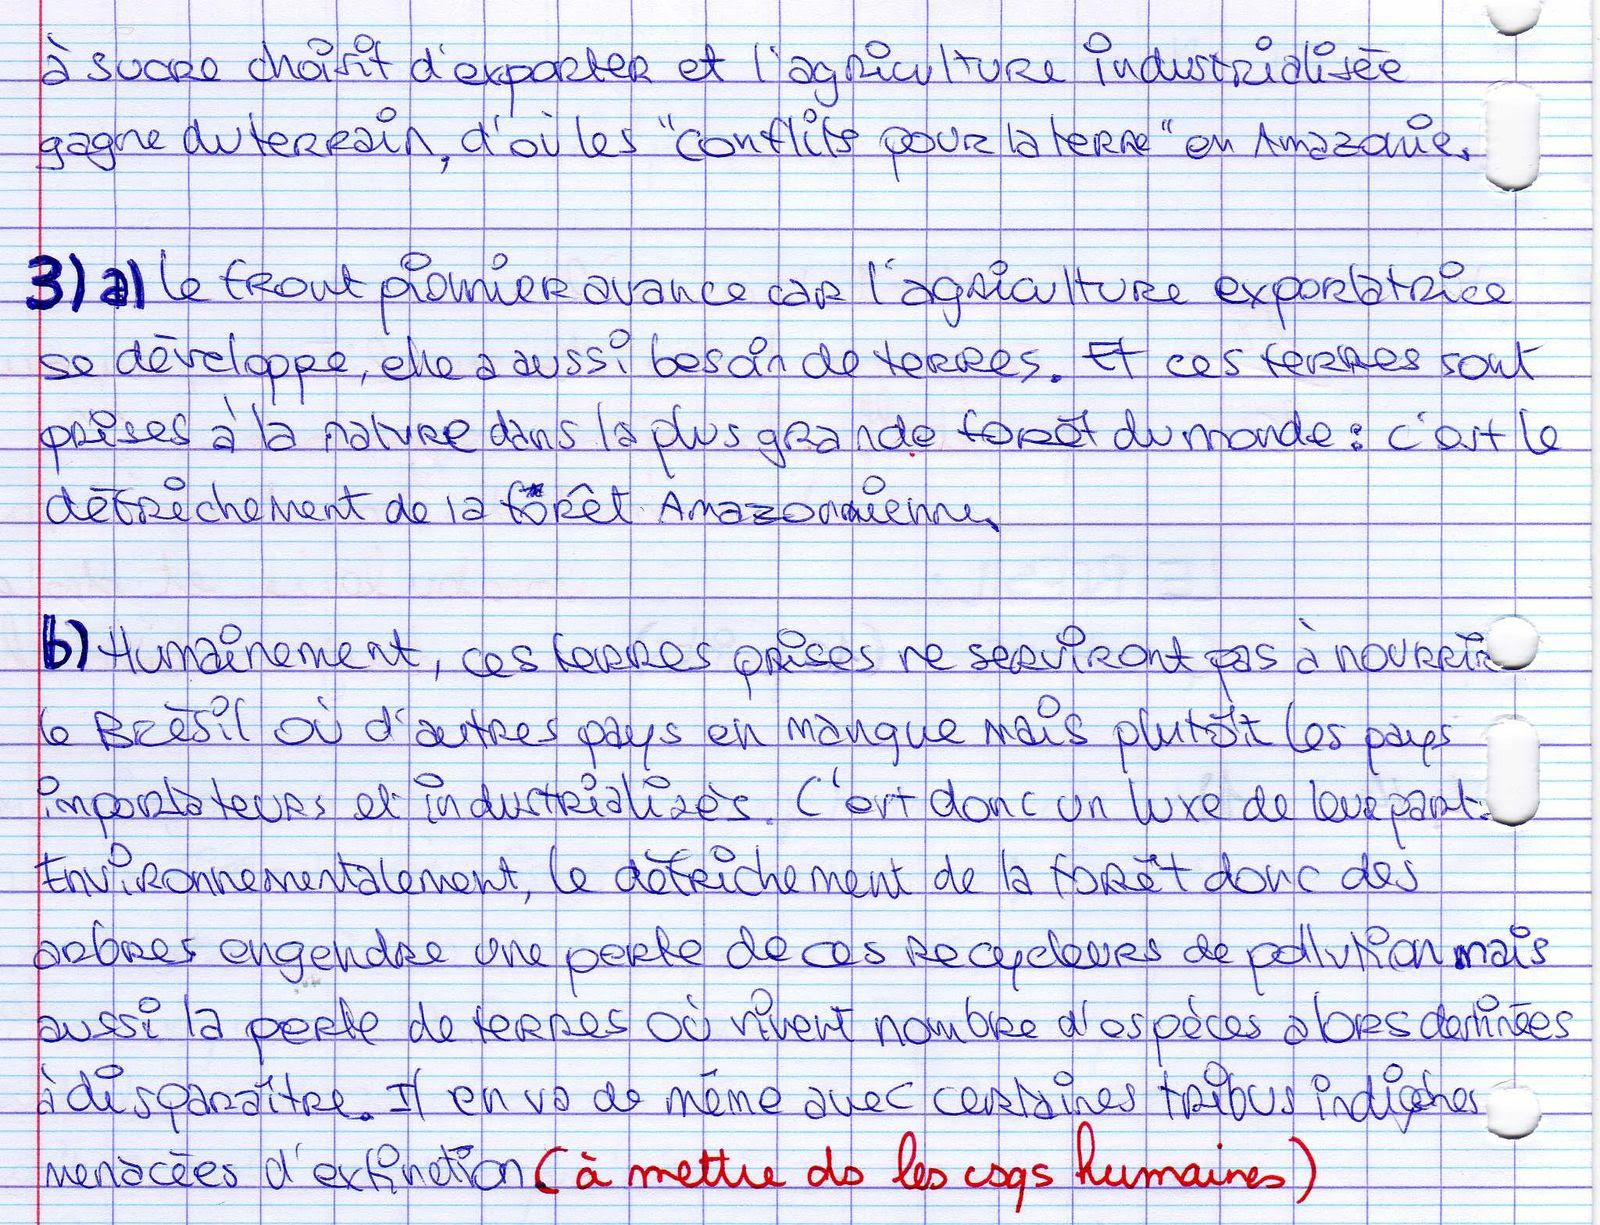 à sucre choisit d'exporter et l'agriculture industrialisée
gagne du terrain, d'où les "conflits pour la terre" en Amazonie.
3) a) Le front pionnier avance car l'agriculture exportatrice
se développe, elle a aussi besoin de terres. Et ces terres sont
prises à la nature dans la plus grande forêt du monde : c'est le
défrichement de la forêt Amazonnienne.
b) Humainement, ces terres prises ne serviront pas à nourrir
le Brésil où d'autres pays en manque mais plutôt les pays
importateurs et industrialisés. C'est donc un luxe de leur part.
Environnementalement, le défrichement de la forêt donc des
arbres engendre une perte de ces recycleurs de pollution mais
aussi la perte de terres où vivent nombre d'espèces alors destinées
à disparaître. Il en va de même avec certaines tribus indigènes
menacées d'extinction (à mettre ds les csqs humaines)